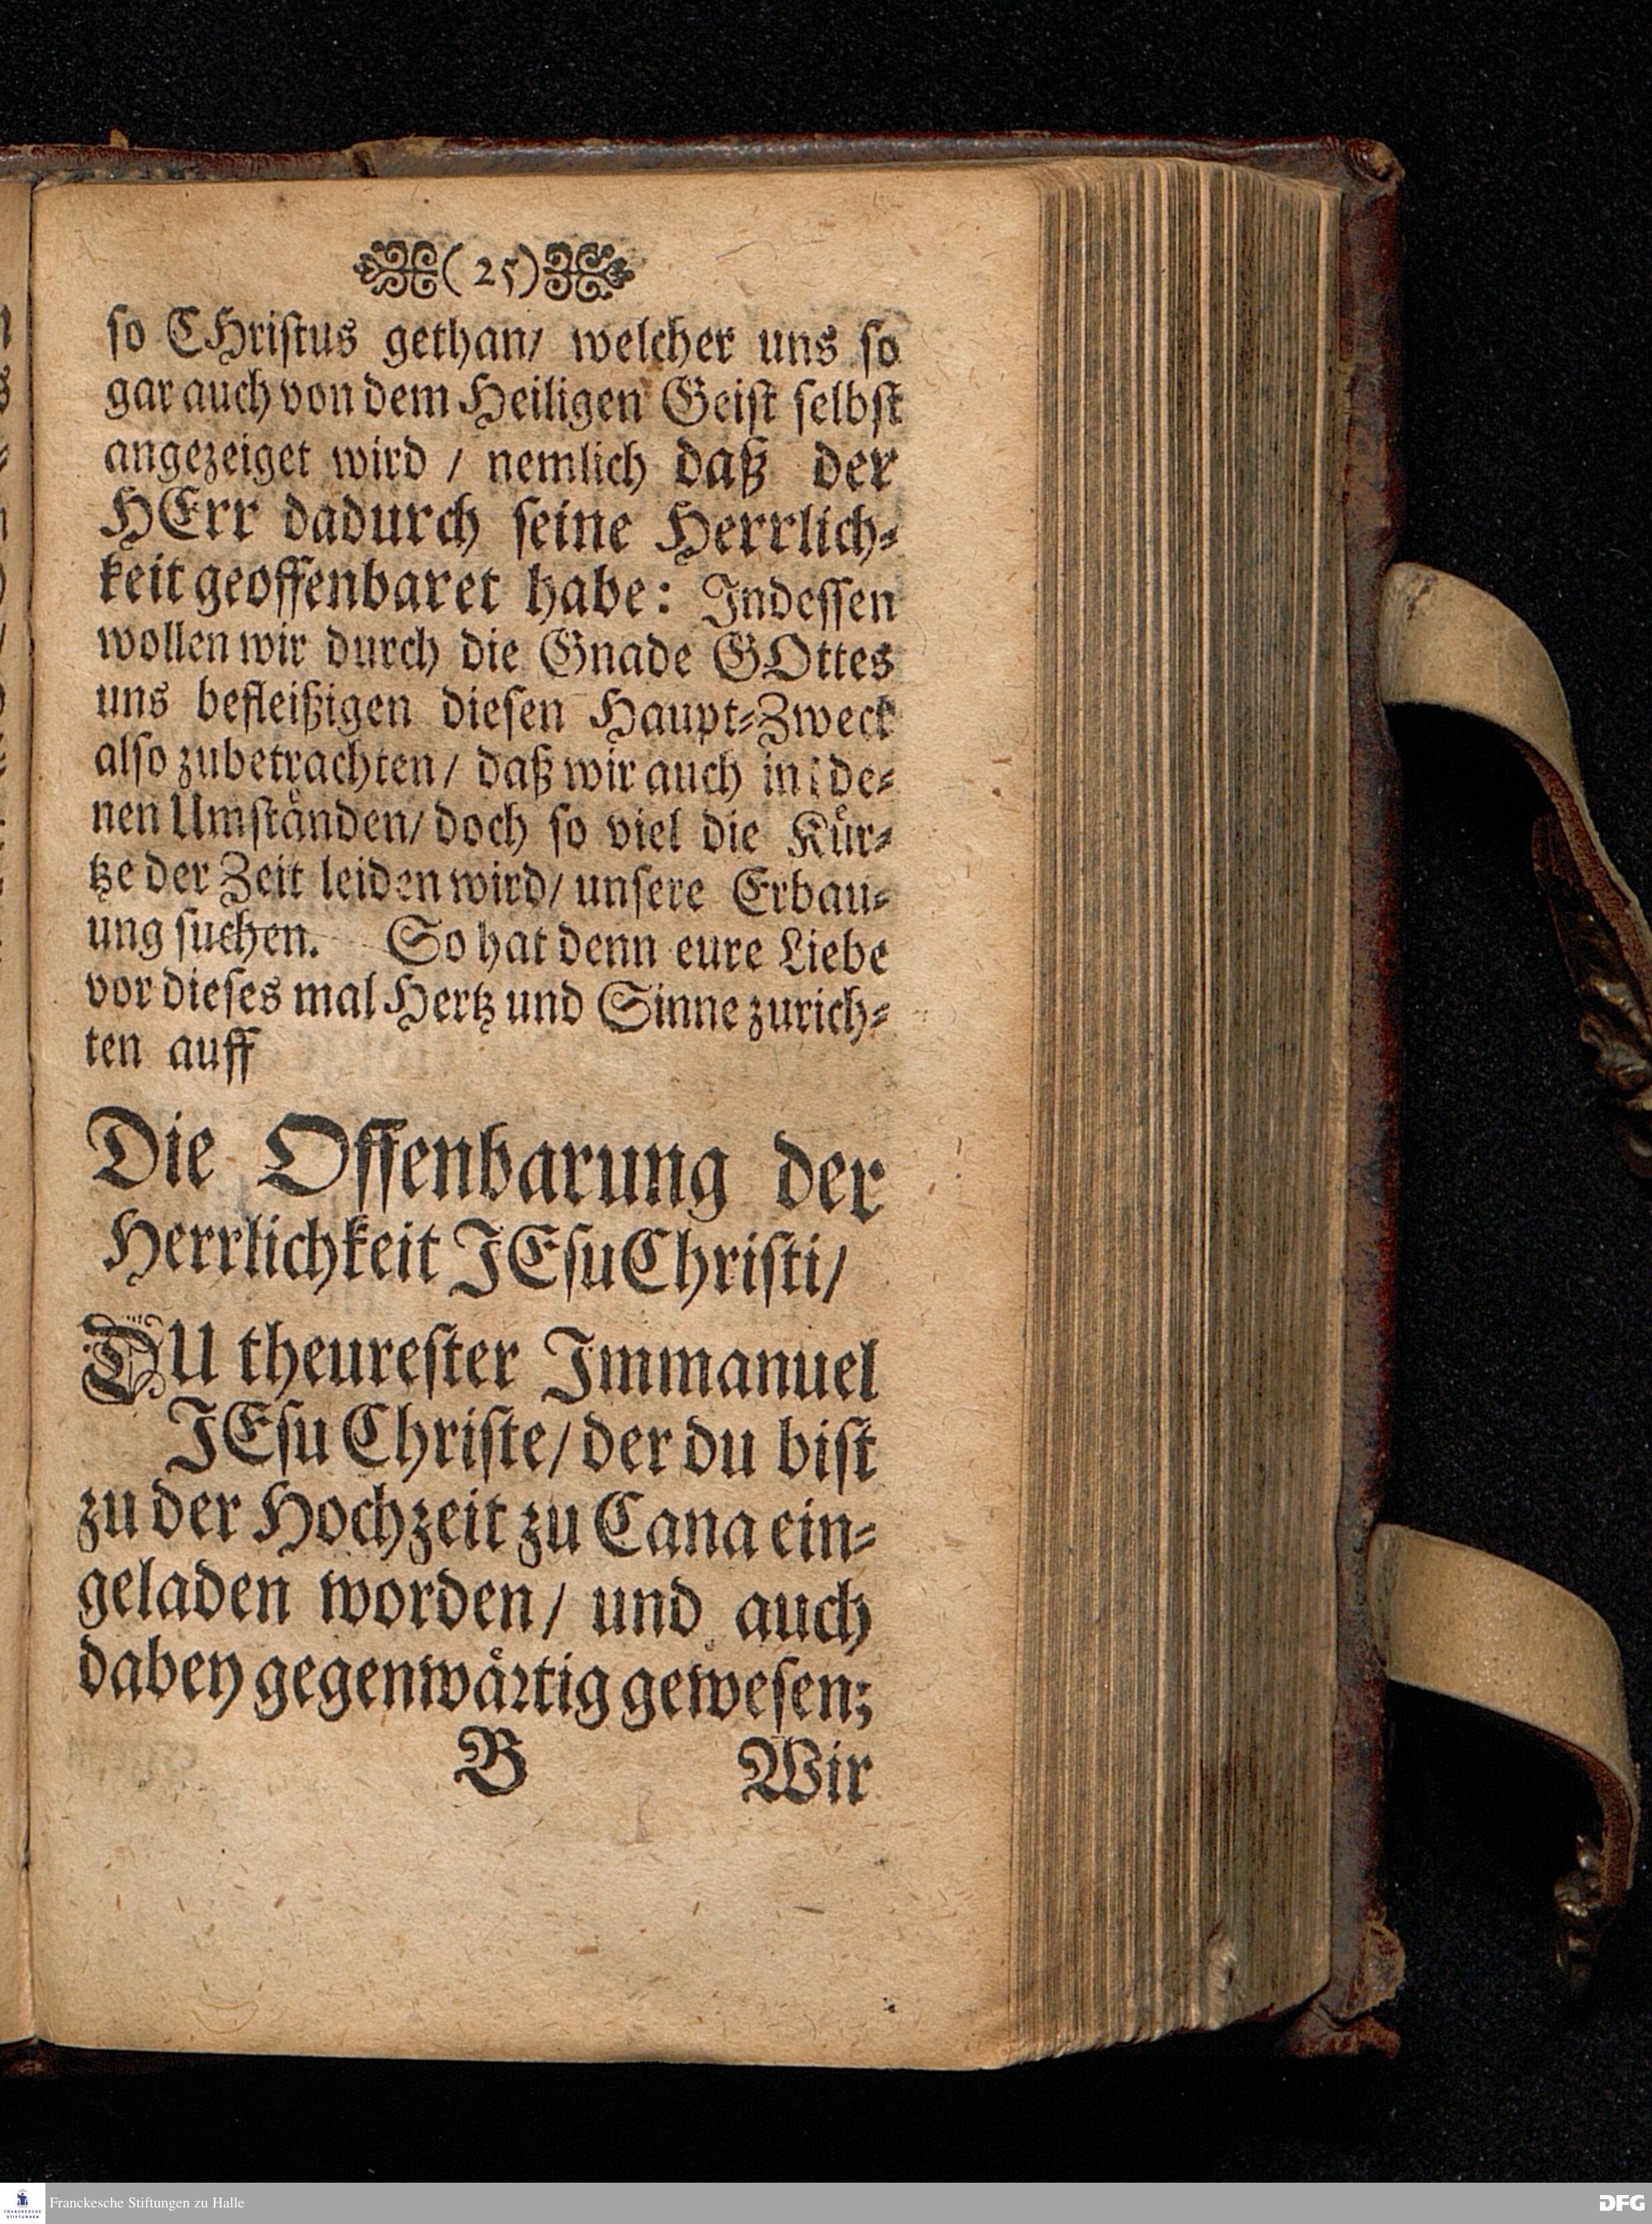 (25)
so CHristus gethan/ welcher uns so
gar auch von dem Heiligen Geist selbst
angezeiget wird / nemlich daß der
HErr dadurch seine Herrlich-
keit geoffenbaret habe: Indessen
wollen wir durch die Gnade GOttes
uns befleißigen diesen Haupt-Zweck
also zubetrachten/ daß wir auch in de-
nen Umständen/ doch so viel die Kür-
tze der Zeit leiden wird/ unsere Erbau-
ung suchen. So hat denn eure Liebe
vor dieses mal Hertz und Sinne zurich-
ten auff
Die Offenbarung der
Herrlichkeit JEsu Christi/
DU theurester Immanuel
JEsu Christe/ der du bist
zu der Hochzeit zu Cana ein-
geladen worden/ und auch
dabey gegenwärtig gewesen;
B Wir
Franckesche Stiftungen zu Halle
DFG